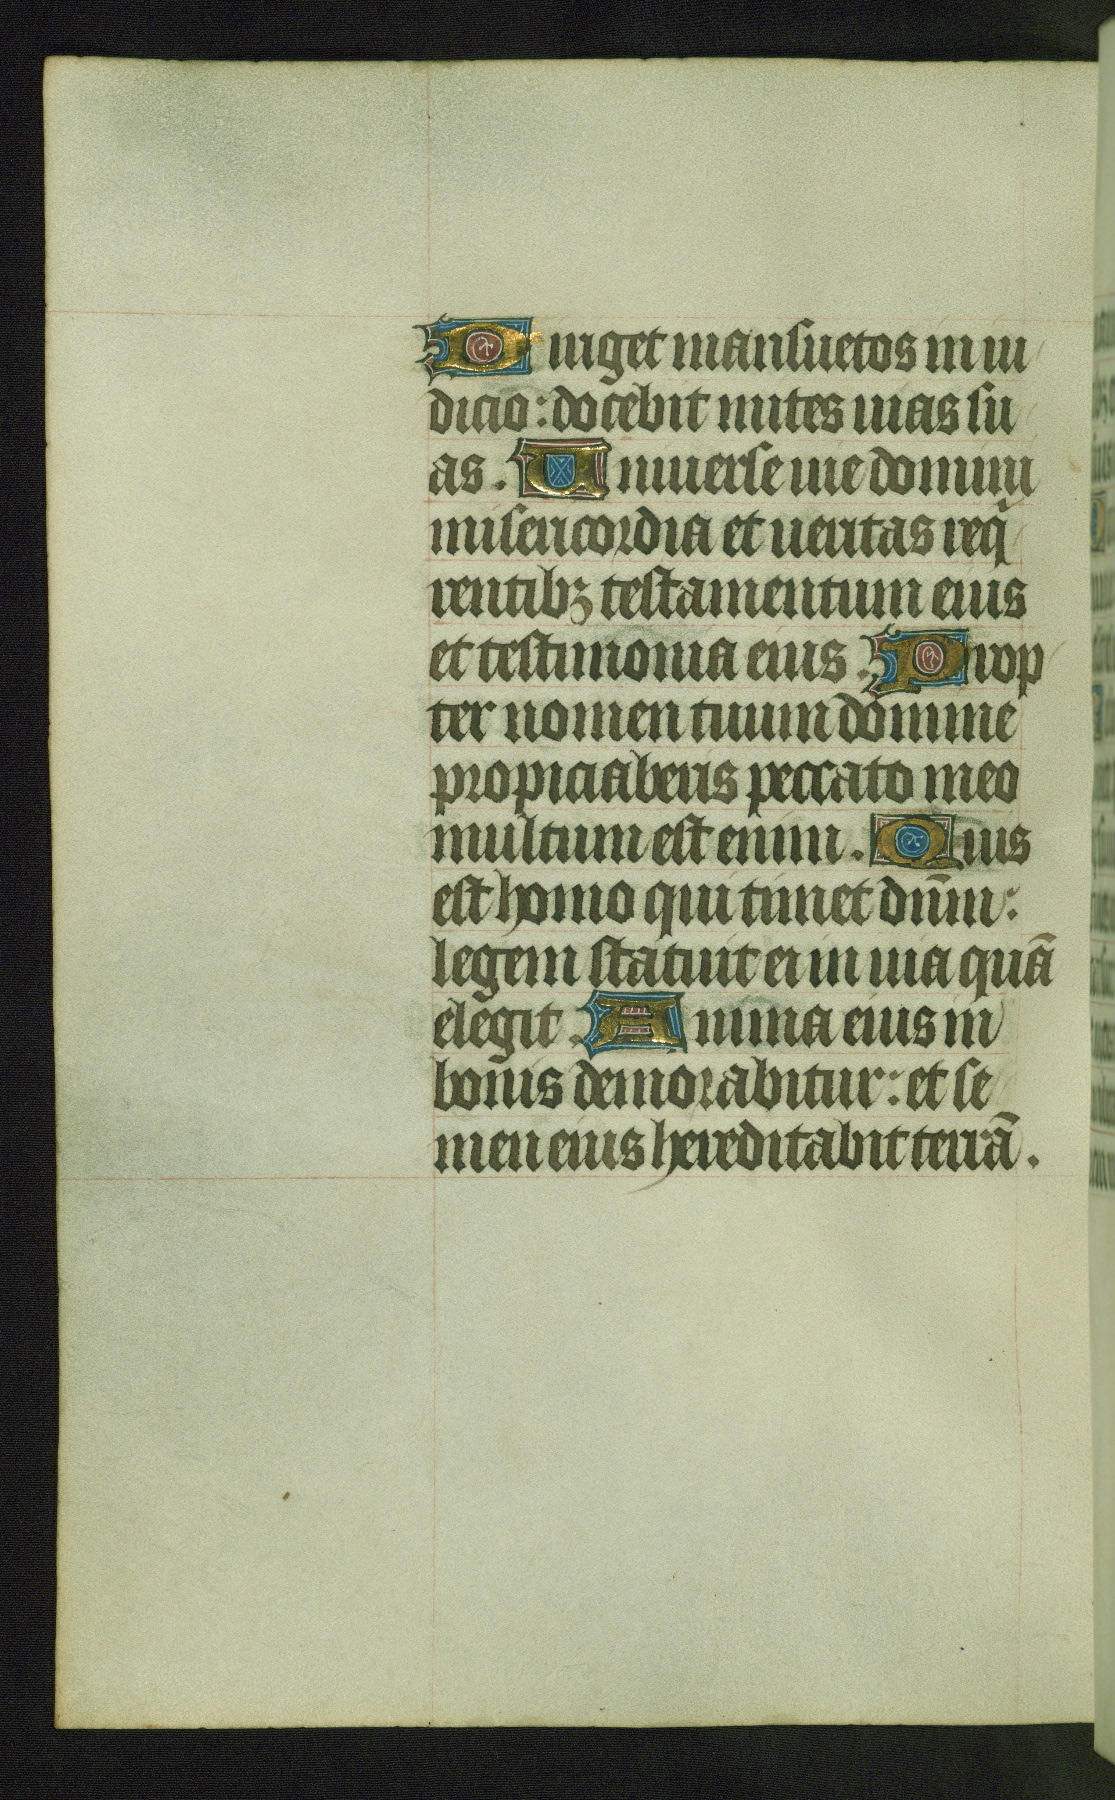 Diriget mansuetos in iu
dicio: docebit mites uias su
as. Uniuerse uie domini
misericordia et ueritas reqͥ
rentibꝫ testamentum eius
et testimonia eius. Prop
ter nomen tuum domine
propiciaberis peccato meo
multum est enim. Quis
est homo qui timet dn̄m:
legem statuit ei in uia quā
elegit. Anima eius in
bonis demorabitur: et se
men eius hereditabit terrā.